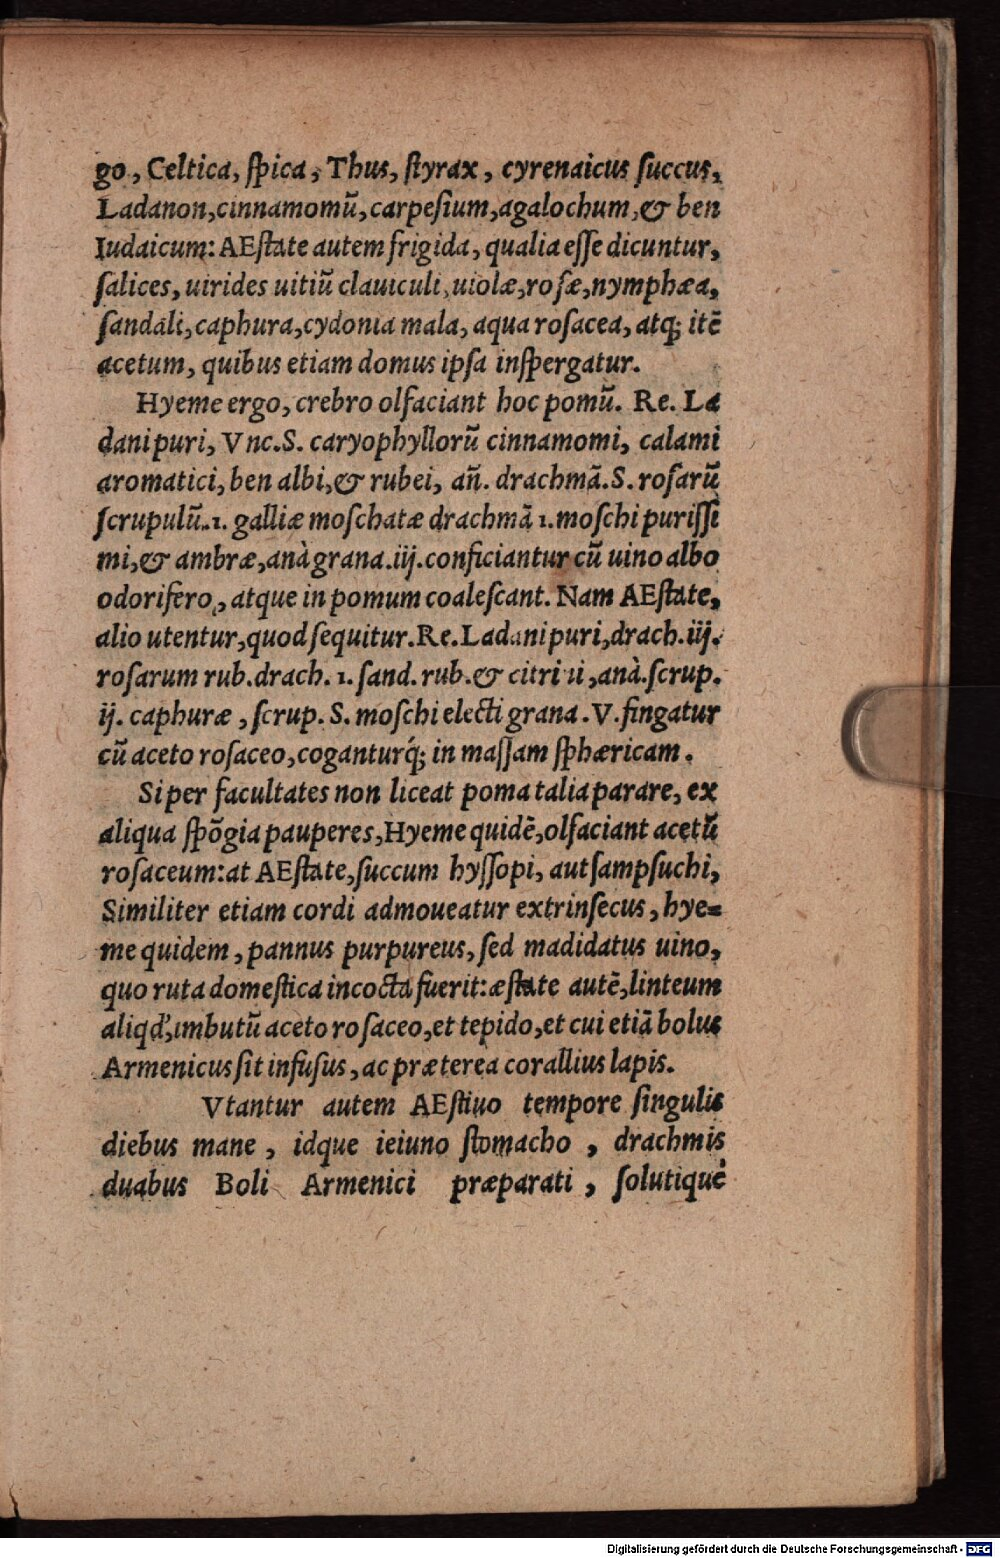 go, Celtica, ſpica, Thus, ſtyrax, cyrenaicus ſuccus,
Ladanon, cinnamomũ, carpeſium, agalochum, & ben
Iudaicum: AEſtate autem frigida, qualia eſſe dicuntur,
ſalices, uirides uitiũ clauiculi, uiolæ, roſæ, nymphæa,
ſandali, caphura, cydonia mala, aqua roſacea, atq; itẽ
acetum, quibus etiam domus ipſa inſpergatur.
Hyeme ergo, crebro olfaciant hoc pomũ. Re. La
dani puri, Vnc. S. caryophyllorũ cinnamomi, calami
aromatici, ben albi, & rubei, añ. drachmã. S. roſarũ
ſcrupulũ. 1. galliæ moſchatæ drachmã 1. moſchi puriſſi
mi, & ambræ, anà grana. iij. conficiantur cũ uino albo
odorifero, atque in pomum coaleſcant. Nam AEſtate,
alio utentur, quod ſequitur. Re. Ladani puri, drach. iij.
roſarum rub. drach. 1. ſand. rub. & citrini, anà. ſcrup.
ij. caphuræ, ſcrup. S. moſchi electi grana. V. fingatur
cũ aceto roſaceo, coganturq́; in maſſam ſphæricam.
Si per facultates non liceat poma talia parare, ex
aliqua ſpõgia pauperes, Hyeme quidẽ, olfaciant acetũ
roſaceum: at AEſtate, ſuccum hyſſopi, aut ſampſuchi,
Similiter etiam cordi admoueatur extrinſecus, hye=
me quidem, pannus purpureus, ſed madidatus uino,
quo ruta domeſtica incocta fuerit: æſtate autẽ, linteum
aliqd', imbutũ aceto roſaceo, et tepido, et cui etiã bolus
Armenicus ſit infuſus, ac præterea corallius lapis.
Vtantur autem AEſtiuo tempore ſingulis
diebus mane, idque ieiuno ſtomacho, drachmis
duabus Boli Armenici præparati, ſolutiquè
Digitalisierung gefördert durch die Deutsche Forschungsgemeinschaft - DFG